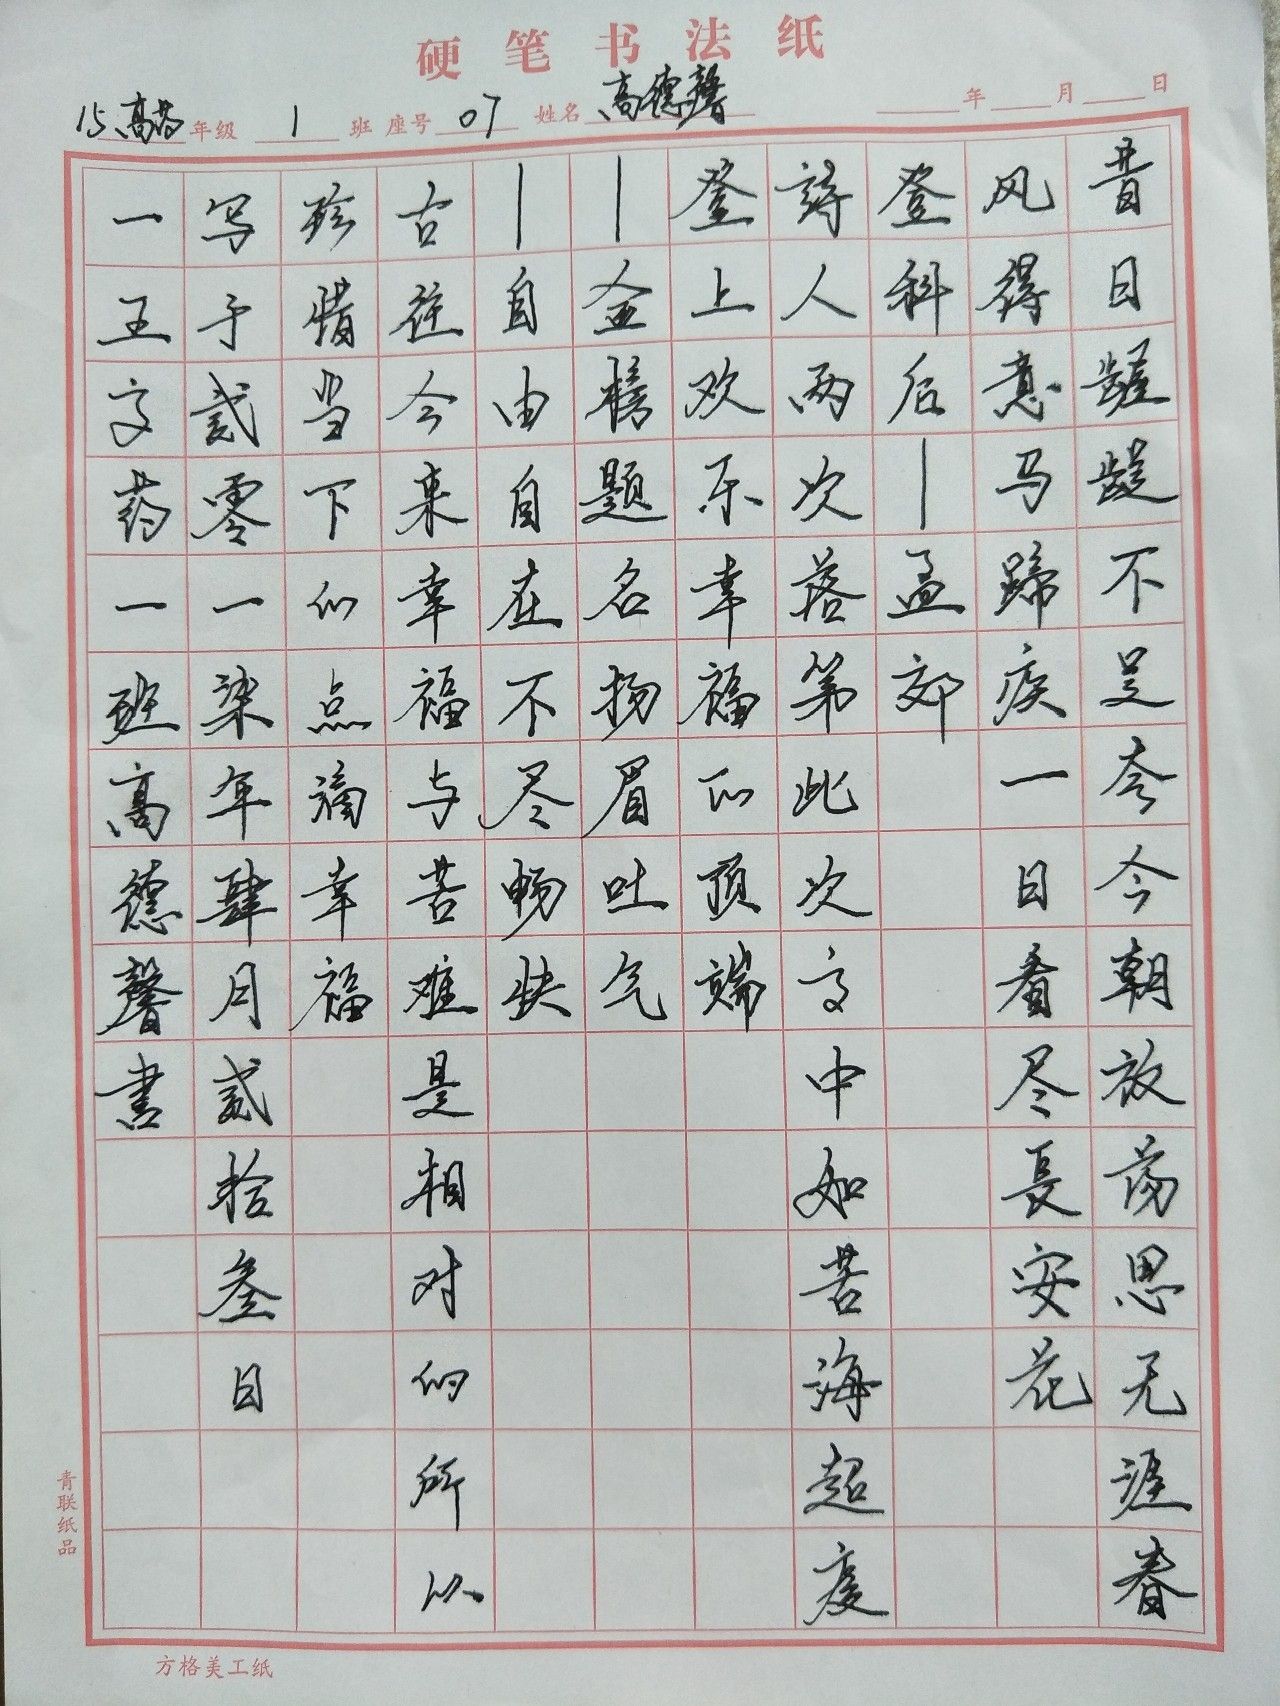 硬笔书法纸
15高药年级 1 班 座号 07 姓名 高德馨 年 月 日
昔日龌龊不足夸今朝放荡思无涯春
风得意马蹄疾一日看尽長安花
登科后—孟郊
詩人两次落第此次高中如苦海超度
登上欢乐幸福的顶端
—金榜题名扬眉吐气
—自由自在不尽畅快
古往今来幸福与苦难是相对的所以
珍惜当下的点滴幸福
写于贰零一柒年肆月贰拾叁日
一五高药一班高德馨書
青联纸品
方格美工纸